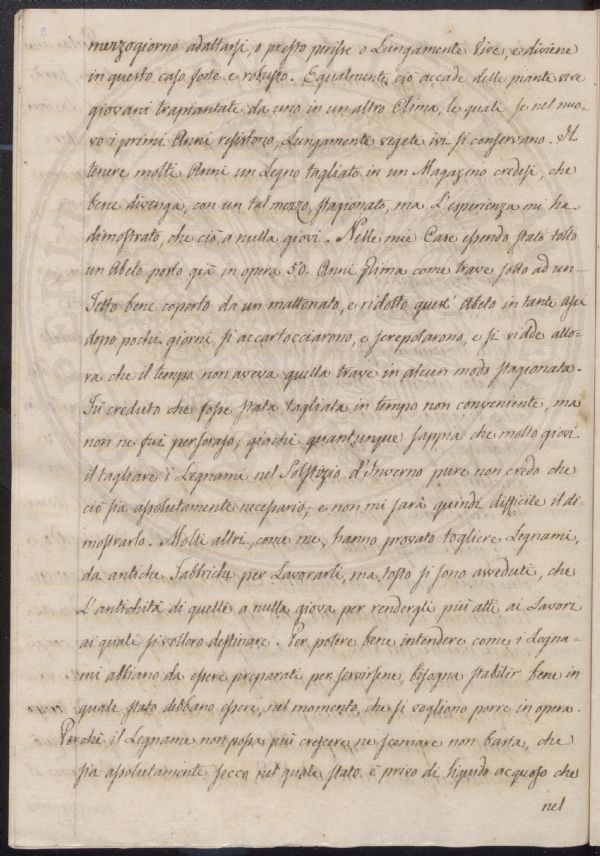 mezzogiorno adattarsi, o presto perisse o Lungamente Vive, e diviene
in questo caso forte e robusto. Equalmente ciò accade delle piante vive
giovani trapiantate da uno in un altro Clima, le quali se nel nuo-
vo i primi Anni resistono, Lungamente vegete ivi si conservano. Il
tenere molti Anni un Legno tagliato in un Magazino credesi, che
bene divenga, con un tal mezzo, stagionato, ma L'esperienza mi ha
dimostrato, che ciò, a nulla giovi. Nelle mie Case essendo stato tolto
un Abeto posto già in opera 50. Anni prima come trave sotto ad un
Tetto bene coperto da un mattonato, e ridotto quest' Abeto in tante asse
dopo pochi giorni si accartocciarono, e screpolarono, e si vidde allo-
ra che il tempo non aveva quella trave in alcun modo stagionata.
Fù creduto che fosse stata tagliata in tempo non conveniente, ma
non ne fui persuaso; giachè quantunque sappia che molto giovi
il tagliare i Legnami nel Solstizio d'Inverno pure non credo che
ciò sia assolutamente necessario; e non mi sarà quindi difficile il di-
mostrarlo. Molti altri, come me, hanno provato togliere Legnami,
da antiche Fabbriche per Lavorarli, ma tosto si sono avveduti, che
L'antichità di quelle a nulla giova per rendergli più atti ai Lavori
ai quale si vollero destinare. Per potere bene intendere come i Legna-
mi abbiano da essere preparati per servirsene, bisogna stabilir bene in
quale stato debbano essere, nel momento, che si vogliono porre in opera.
Perchè il Legname non possa più crescere ne scemare non basta, che
sia assolutamente secco nel quale stato è privo di liquido acquoso che
nel